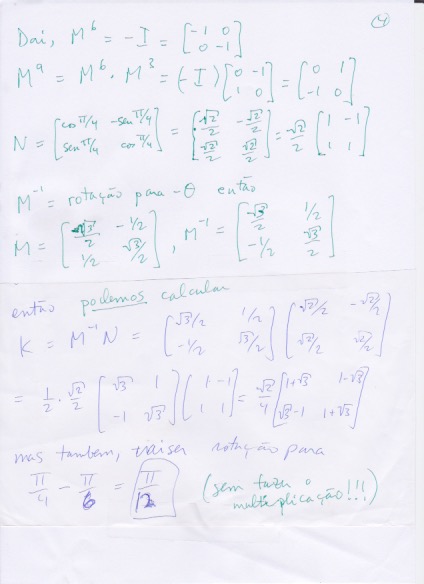 4
Daí, M^6 = -I = [-1 0; 0 -1]
M^9 = M^6 · M^3 = (-I) [0 -1; 1 0] = [0 1; -1 0]
N = [cos π/4 -sen π/4; sen π/4 cos π/4] = [√2/2 -√2/2; √2/2 √2/2] = √2/2 [1 -1; 1 1]
M^-1 = rotação para -θ então
M = [√3/2 -1/2; 1/2 √3/2], M^-1 = [√3/2 1/2; -1/2 √3/2]
então podemos calcular
K = M^-1 N = [√3/2 1/2; -1/2 √3/2] [√2/2 -√2/2; √2/2 √2/2]
= 1/2 · √2/2 [√3 1; -1 √3] [1 -1; 1 1] = √2/4 [1+√3 1-√3; √3-1 1+√3]
mas também, vai ser rotação para
π/4 - π/6 = π/12 (sem fazer o
multiplicação!!!)